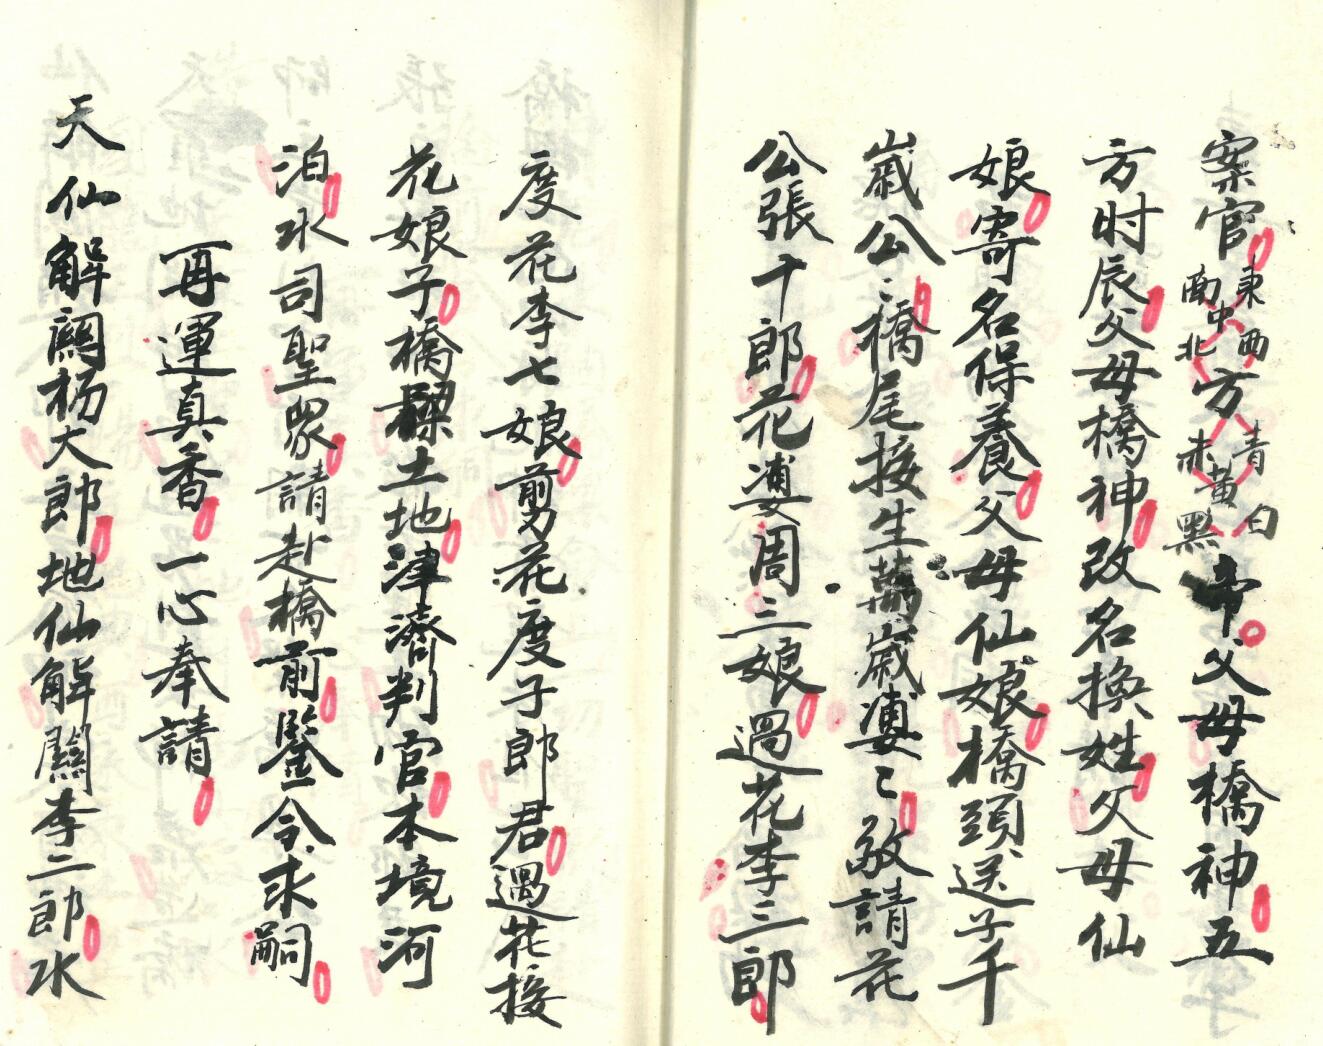 案官東西南北中方青白赤黑黄帝父母橋神五
方时辰父母橋神改名換姓父母仙
娘寄名保養父母仙娘橋頭送子千
嵗公〻橋尾接生萬嵗婆〻敬請花
公張十郎花婆周三娘過花李三郎
度花李七娘剪花度子郎君過花接
花娘子橋樑土地津濟判官本境河
泊水司聖眾請赴橋前鑒令求嗣
再運真香一心奉請
天仙解關杨大郎地仙解關李二郎水